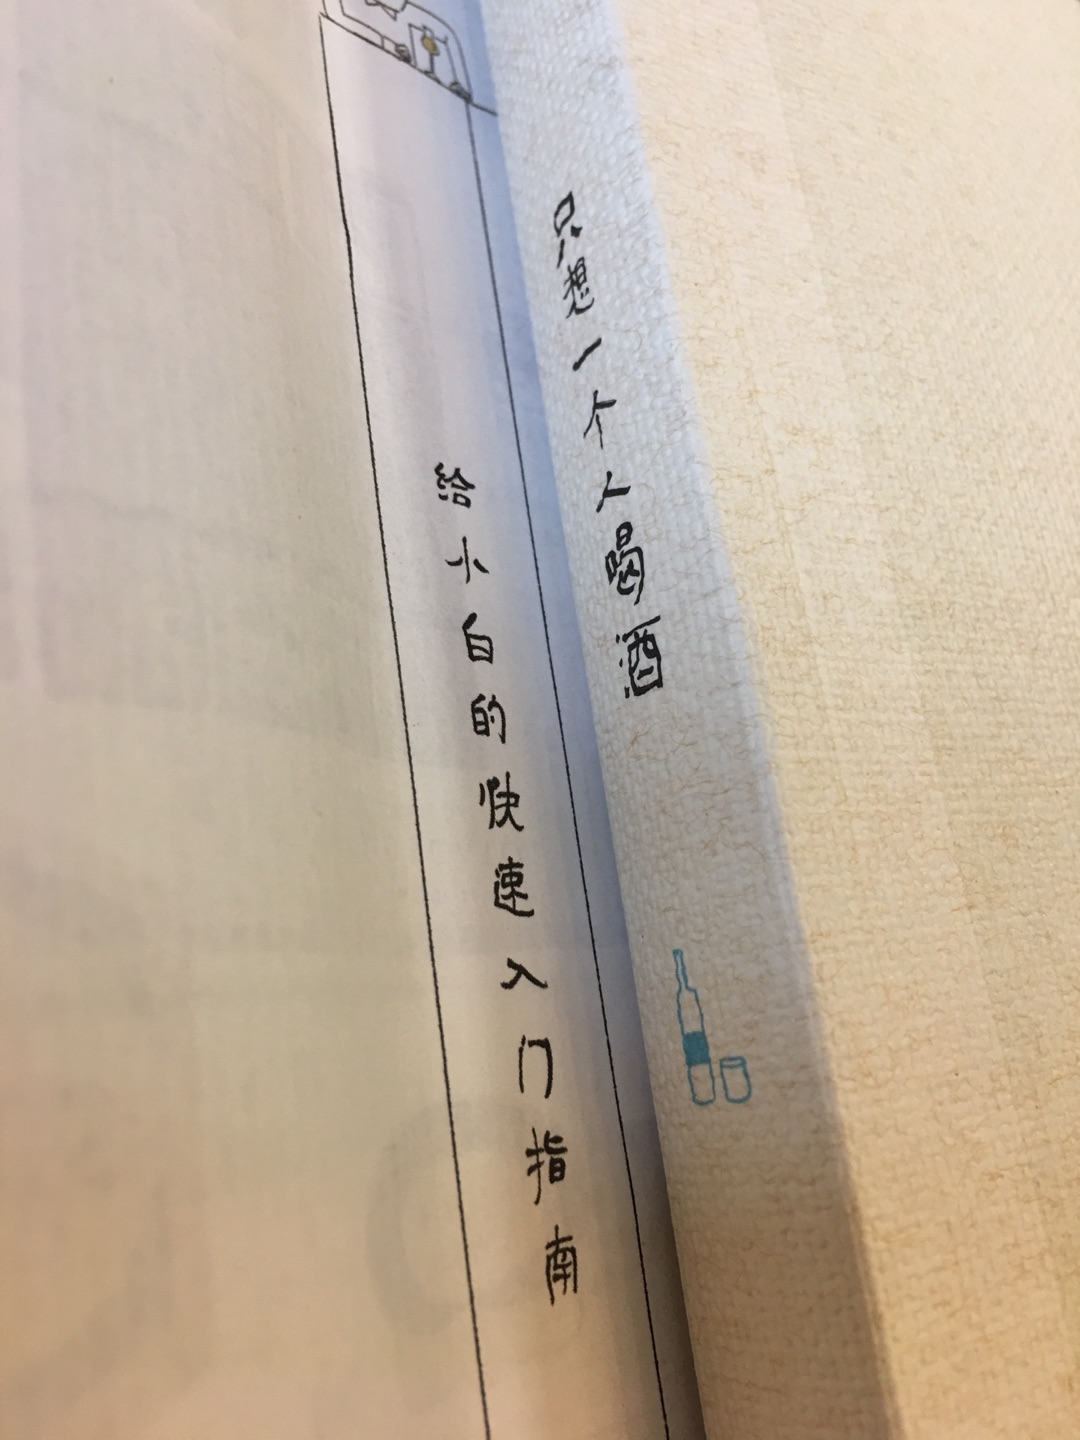 只想一个人喝酒
给小白的快速入门指南